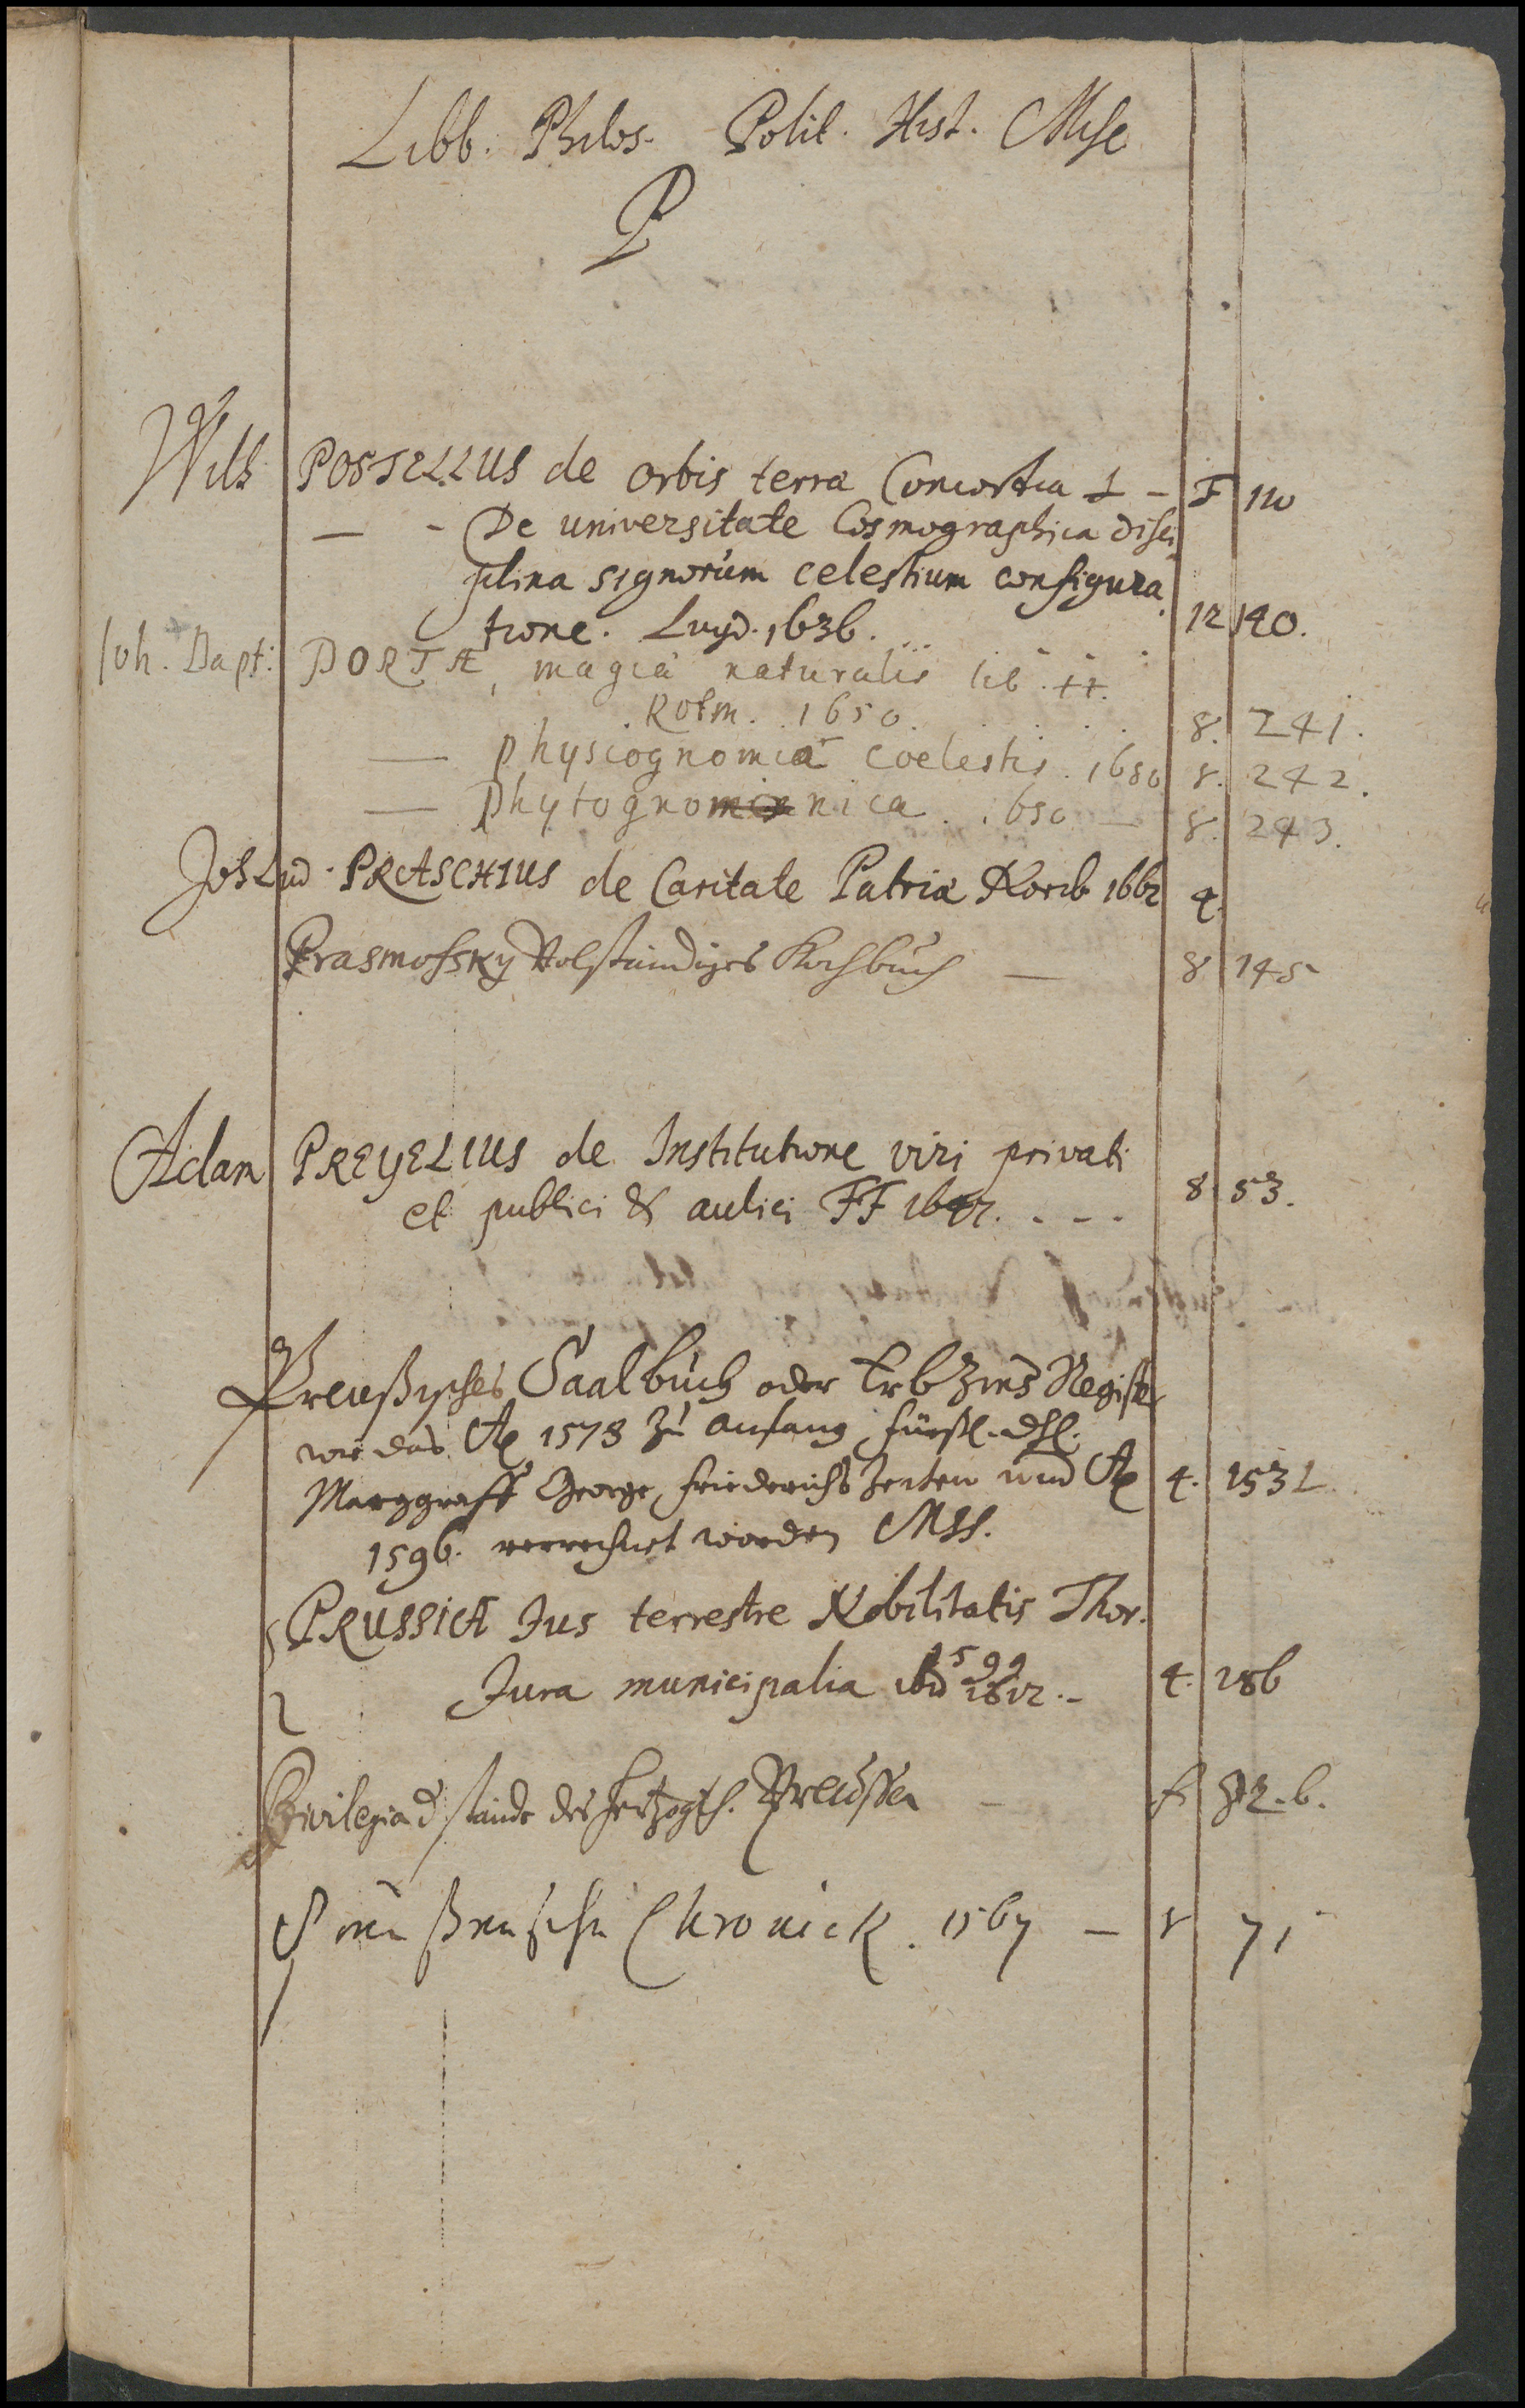 Libb. Philos. Polit. Hist. Misc
P
Wilh POSTELLUS de orbis terræ Concordia L - F 110
— - De universitate Cosmographica disci
plina signorum celestium configura
tione. Lugd. 1636. 12 140.
Joh. Bapt: PORTÆ, magiæ naturalis lib. XX.
Rotm. 1650. 8. 241.
— physiognomia coelestis. 1650 8. 242.
— phytognomonica. 1650 — 8. 243.
Joh Lud. PRASCHIUS de Caritate Patriæ Norib 1662 4.
Prasmofsky Volständiges Kochbuch — 8 145
Adam PREYELIUS de Institutione viri privati
et publici & aulici FF . - - - 8 53.
Preußisches Saalbuch oder Erb Zins Register
wie das Ao 1578 zu anfang fürstl. dhl.
Marggraff George Friederichs Zeiten und Ao 4. 153
1596. verrechnet worden MSS.
PRUSSICA Jus terrestre Nobilitatis Thor.
1599
Jura municipalia ibid 4. 186
Privilegia d stände des Hertzogth. Preussen — f 82.b.
Preußnische Chronick. 1567 — 8 71